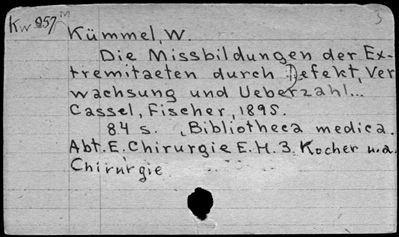 Kw 957 m
3
Kümmel, W.
Die Missbildungen der Ex-
tremitaeten durch Defekt, Ver
wachsung und Ueberzahl...
Cassel, Fischer, 1895.
84 s. (Bibliotheca medica.
Abt. E. Chirurgie E. H. 3. Kocher u.a.
Chirurgie